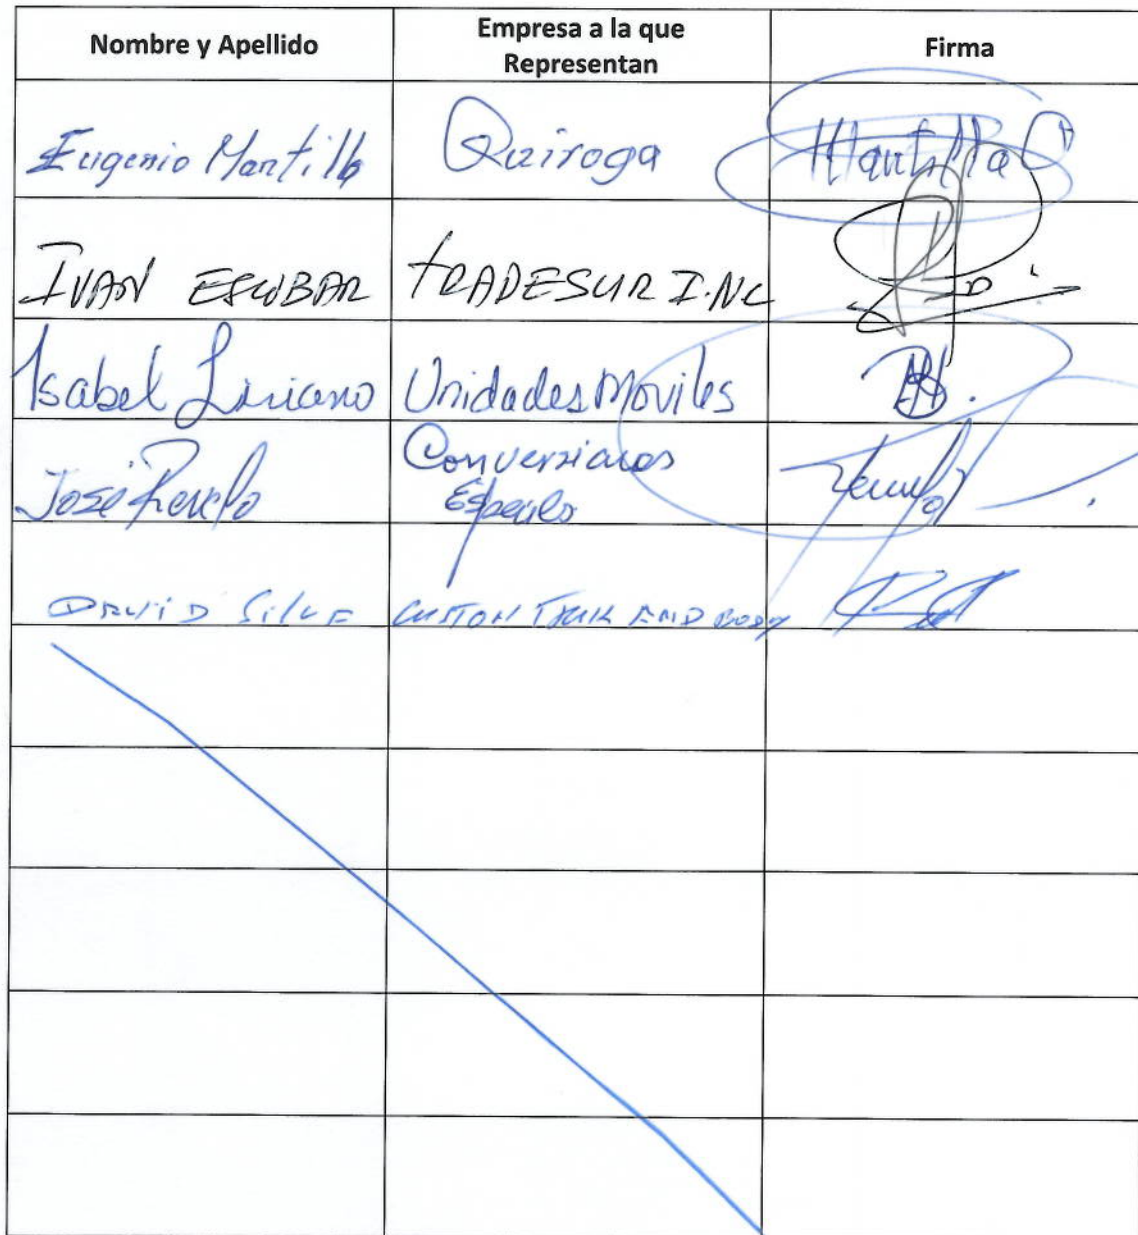 Nombre y Apellido
Empresa a la que
Representan
Firma
Eugenio Mantilla
Quiroga
Mantilla
IVAN ESCOBAR
TRADESUR I.NC
Isabel Liriano
Unidades Moviles
José
Conversiones
DAVID SILVA
CUSTOM TRUK AND BODY